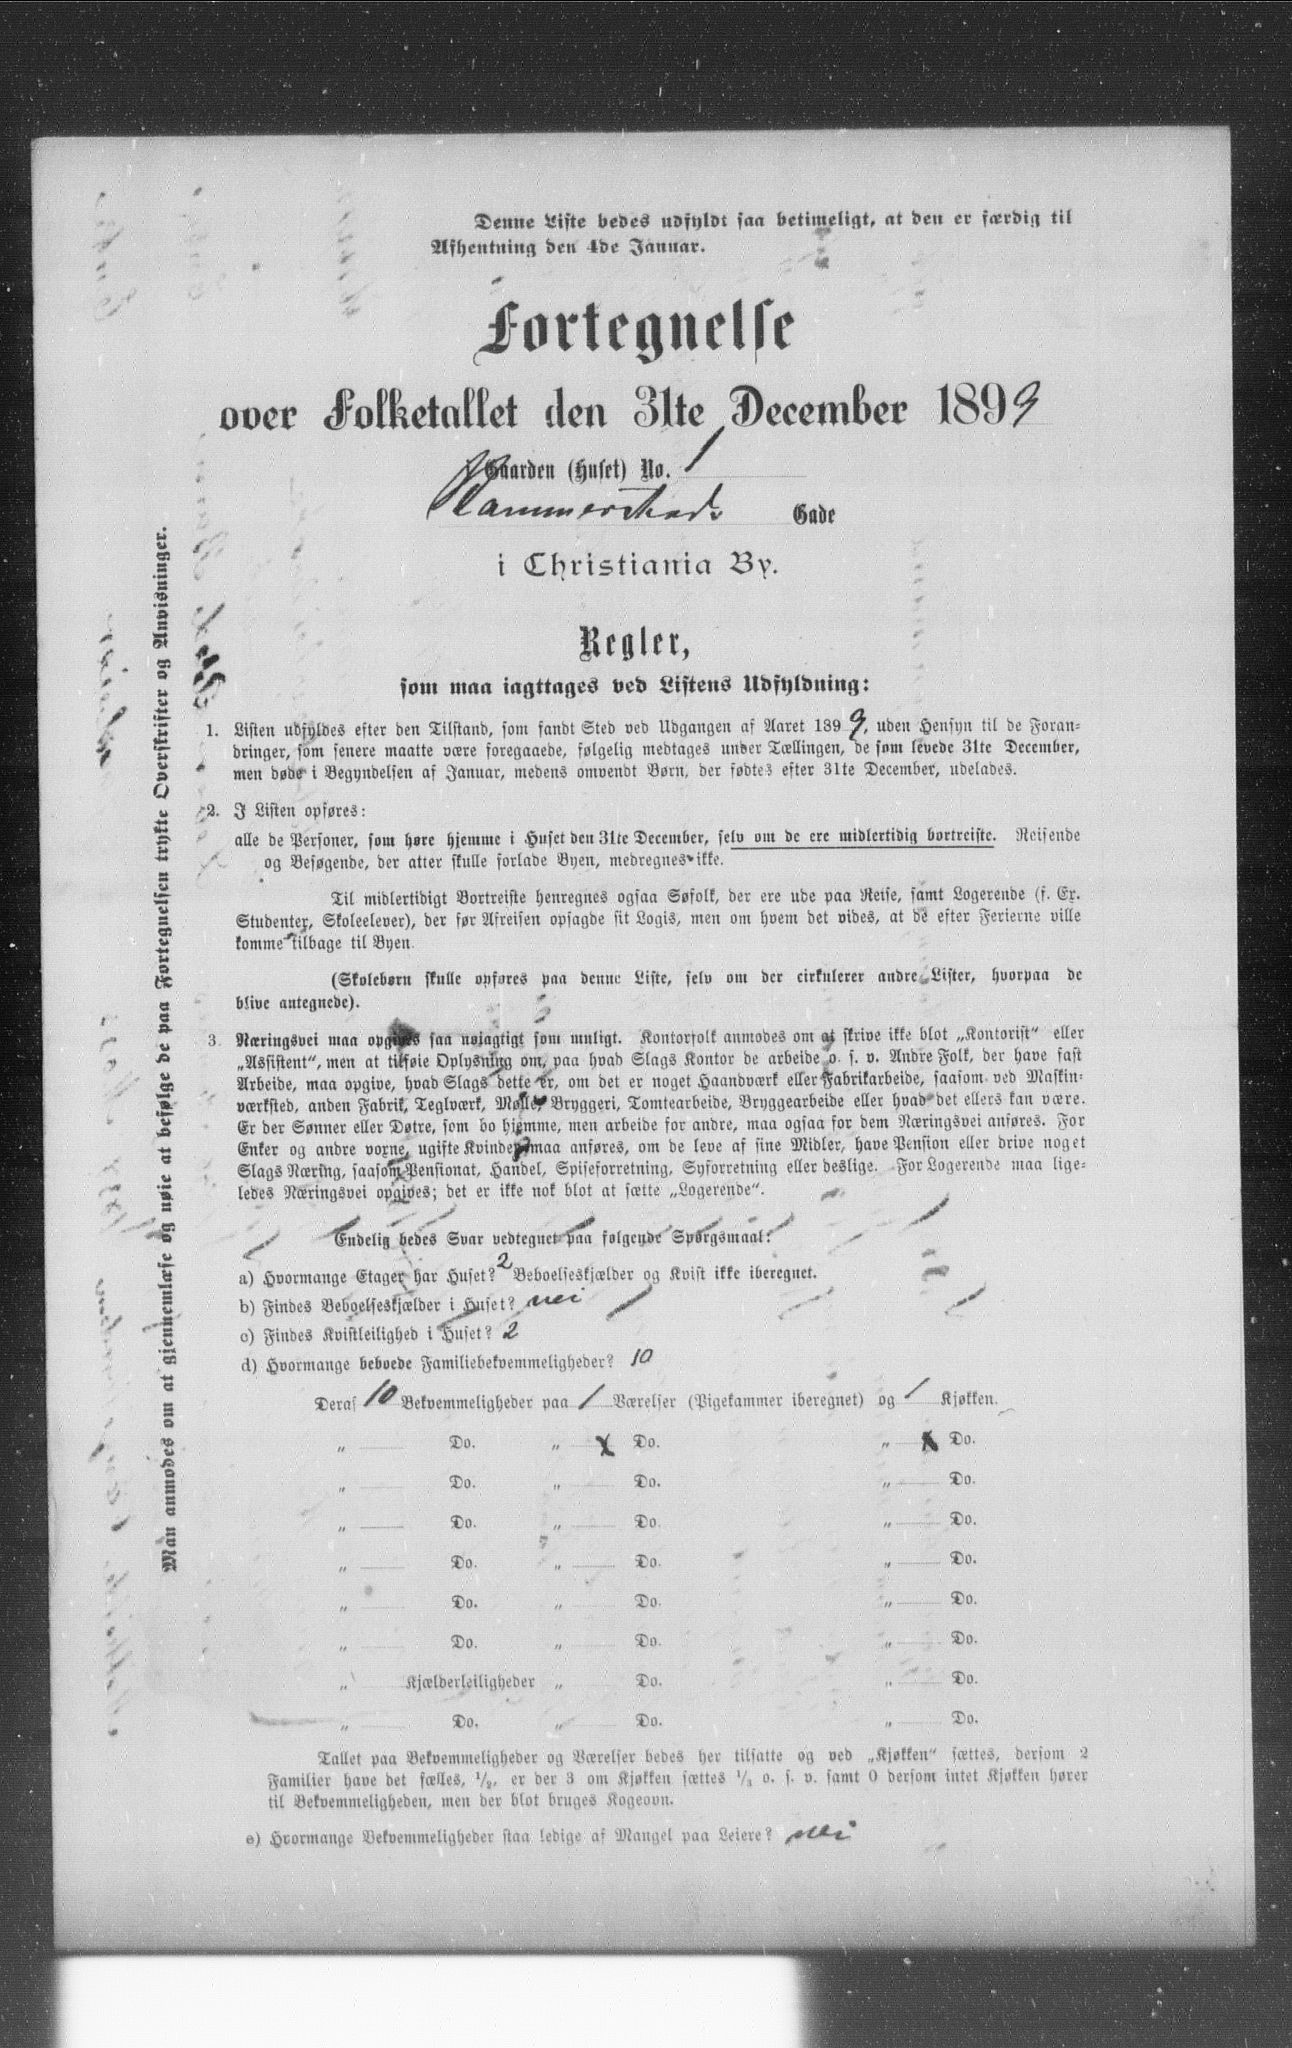 Denne Liste bedes udfyldt saa betimeligt, at den er færdig til
Afhentning den 4de Januar.
Fortegnelse
over Folketallet den 31te December 1899
Gaarden (Huset) No. 1
Hammerstads Gade
i Christiania By.
Regler,
som maa iagttages ved Listens Udfyldning:
1. Listen udfyldes efter den Tilstand, som fandt Sted ved Udgangen af Aaret 1899, uden Hensyn til de Foran-
dringer, som senere maatte være foregaaede, følgelig medtages under Tællingen, de som levede 31te December,
men døde i Begyndelsen af Januar, medens omvendt Børn, der fødtes efter 31te December, udelades.
2. I Listen opføres:
alle de Personer, som høre hjemme i Huset den 31te December, selv om de ere midlertidig bortreiste. Reisende
og Besøgende, der atter skulle forlade Byen, medregnes ikke.
Til midlertidigt Bortreiste henregnes ogsaa Søfolk, der ere ude paa Reise, samt Logerende (f. Ex.
Studenter, Skoleelever), der før Afreisen opsagde sit Logis, men om hvem det vides, at de efter Ferierne ville
komme tilbage til Byen.
(Skolebørn skulle opføres paa denne Liste, selv om der cirkulerer andre Lister, hvorpaa de
blive antegnede).
3. Næringsvei maa opgives saa nøiagtigt som muligt. Kontorfolk anmodes om at skrive ikke blot „Kontorist" eller
„Assistent", men at tilføie Oplysning om, paa hvad Slags Kontor de arbeide o. s. v. Andre Folk, der have fast
Arbeide, maa opgive, hvad Slags dette er, om det er noget Haandværk eller Fabrikarbeide, saasom ved Maskin-
værksted, anden Fabrik, Teglværk, Mølle, Bryggeri, Tomtearbeide, Bryggearbeide eller hvad det ellers kan være.
Er der Sønner eller Døtre, som bo hjemme, men arbeide for andre, maa ogsaa for dem Næringsvei anføres. For
Enker og andre voxne, ugifte Kvinder maa anføres, om de leve af sine Midler, have Pension eller drive noget
Slags Næring, saasom Pensionat, Handel, Spiseforretning, Syforretning eller deslige. For Logerende maa lige-
ledes Næringsvei opgives; det er ikke nok blot at sætte „Logerende".
Endelig bedes Svar vedtegnet paa følgende Spørgsmaal:
a) Hvormange Etager har Huset? 2 Beboelseskjælder og Kvist ikke iberegnet.
b) Findes Beboelseskjælder i Huset? nei
c) Findes Kvistleilighed i Huset? 2
d) Hvormange beboede Familiebekvemmeligheder? 10
Deraf 10 Bekvemmeligheder paa 1 Værelser (Pigekammer iberegnet) og 1 Kjøkken.
„ Do. „ x Do. „ x Do.
„ Do. „ Do. „ Do.
„ Do. „ Do. „ Do.
„ Do. „ Do. „ Do.
„ Do. „ Do. „ Do.
„ Do. „ Do. „ Do.
„ Kjælderleiligheder „ Do. „ Do.
„ Do. „ Do. „ Do.
Tallet paa Bekvemmeligheder og Værelser bedes her tilsatte og ved „Kjøkken" sættes, dersom 2
Familier have det fælles, 1/2, er der 3 om Kjøkken sættes 1/3 o. s. v. samt 0 dersom intet Kjøkken hører
til Bekvemmeligheden, men der blot bruges Kogeovn.
e) Hvormange Bekvemmeligheder staa ledige af Mangel paa Leiere? nei
Man anmodes om at gjennemlæse og nøie at befølge de paa Fortegnelsen trykte Overskrifter og Anvisninger.